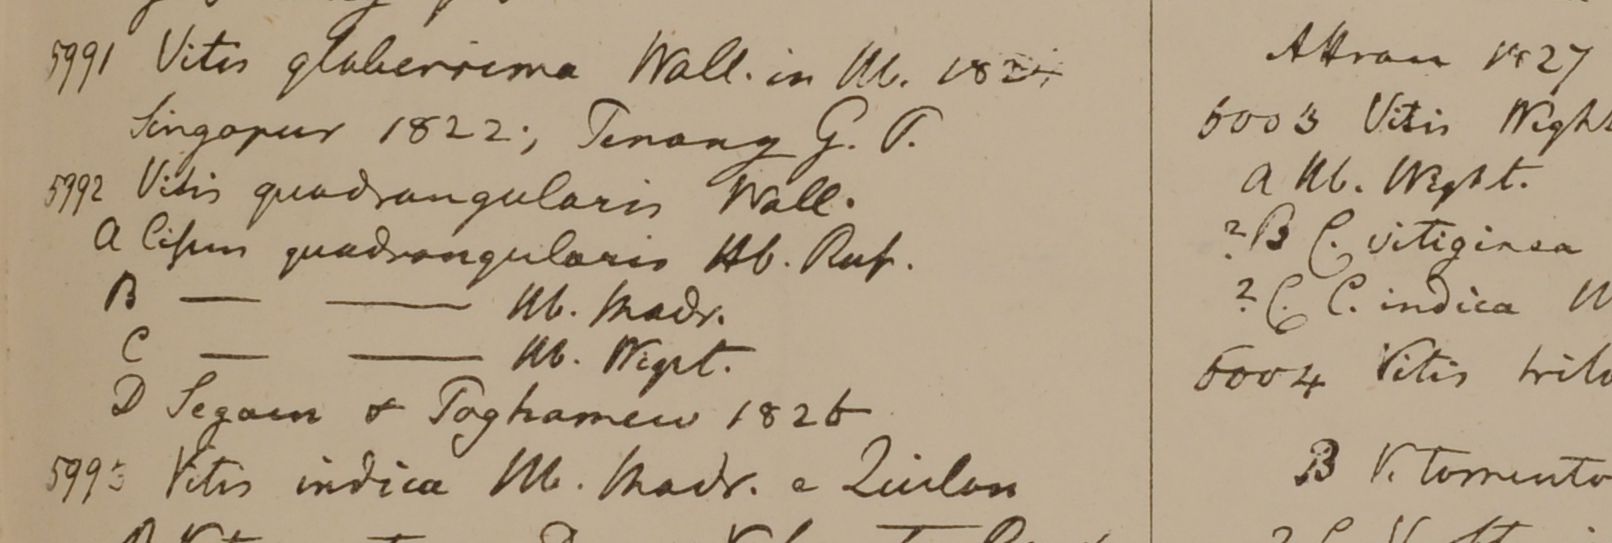 5991 Vitis glaberrima Wall. in Hb. 182
Singapur 1822; Penang G. P.
5992 Vitis quadrangularis Wall.
A Cissus quadrangularis Hb. Rox.
B — — Hb. Madr.
C — — Hb. Wight.
D Segaen & Paghamew 1826
5993 Vitis indica Hb. Madr. e Quilon
Attran 1827
6003 Vitis Wight
A Hb. Wight.
? B C. vitiginea
? C. C. indica
6004 Vitis trilo
B V. tomento